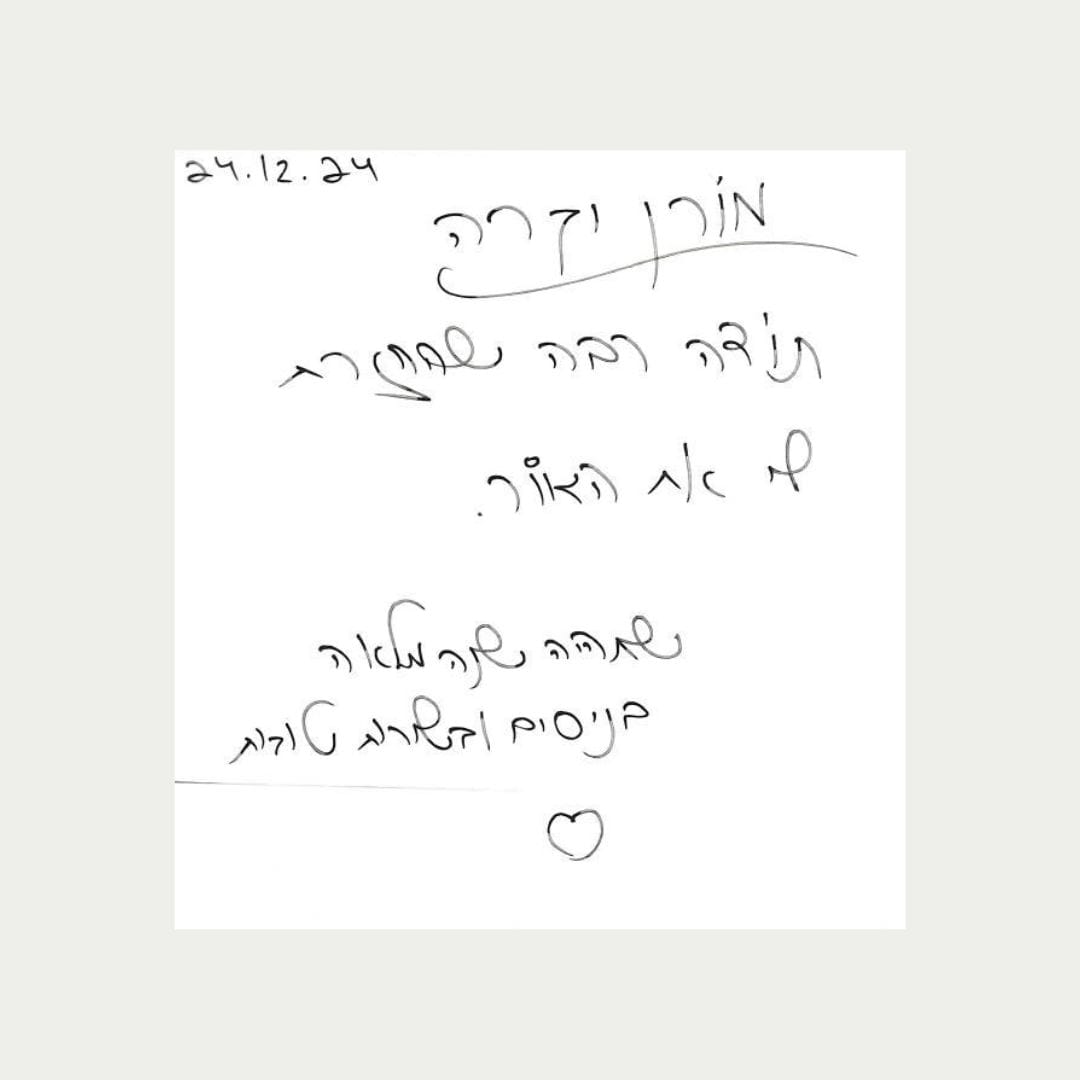 24.12.24
מורן יקרה
תודה רבה שהחזרת
לי את האור.
שתהיה שנה מלאה
בניסים ובשורות טובות